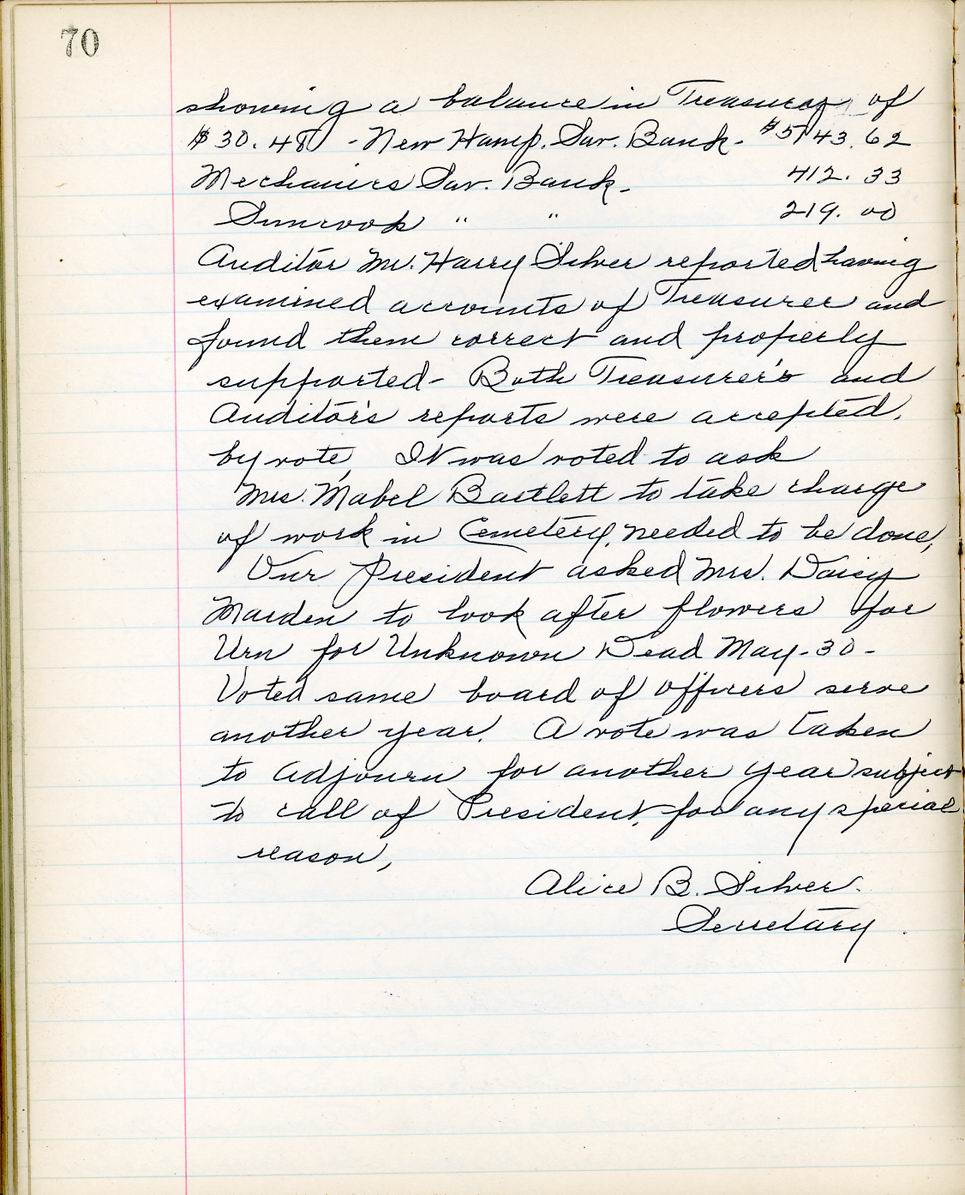 70
showing a balance in Treasury of
$30.48 - New Hamp. Sav. Bank - $543.62
Mechanics Sav. Bank - 412.33
Suncook " " 219.00
Auditor Mr. Harry Silver reported having
examined accounts of Treasurer and
found them correct and properly
supported - Both Treasurer's and
Auditor's reports were accepted,
by vote, It was voted to ask
Mrs. Mabel Bartlett to take charge
of work in Cemetery, needed to be done,
Our President asked Mrs. Daisy
Marden to look after flowers for
Urn for Unknown Dead May - 30 -
Voted same board of officers serve
another year. A vote was taken
to adjourn for another year subject
to call of President, for any special
reason,
Alice B. Silver.
Secretary